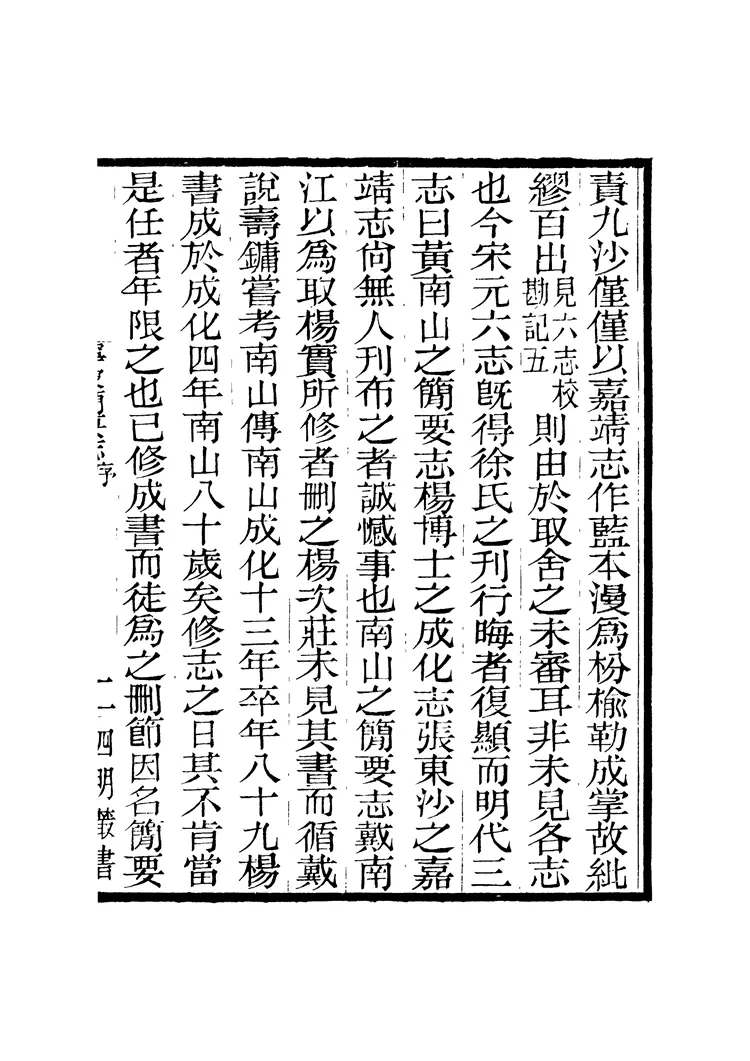 責九沙僅僅以嘉靖志作藍本漫爲枌榆勒成掌故紕
繆百出見六志校勘記五則由於取舍之未審耳非未見各志
也今宋元六志旣得徐氏之刊行晦者復顯而明代三
志曰黃南山之簡要志楊博士之成化志張東沙之嘉
靖志尙無人刊布之者誠憾事也南山之簡要志戴南
江以爲取楊實所修者刪之楊次莊未見其書而循戴
說壽鏞嘗考南山傳南山成化十三年卒年八十九楊
書成於成化四年南山八十歲矣修志之日其不肯當
是任者年限之也已修成書而徒爲之刪節因名簡要
序
四明叢書